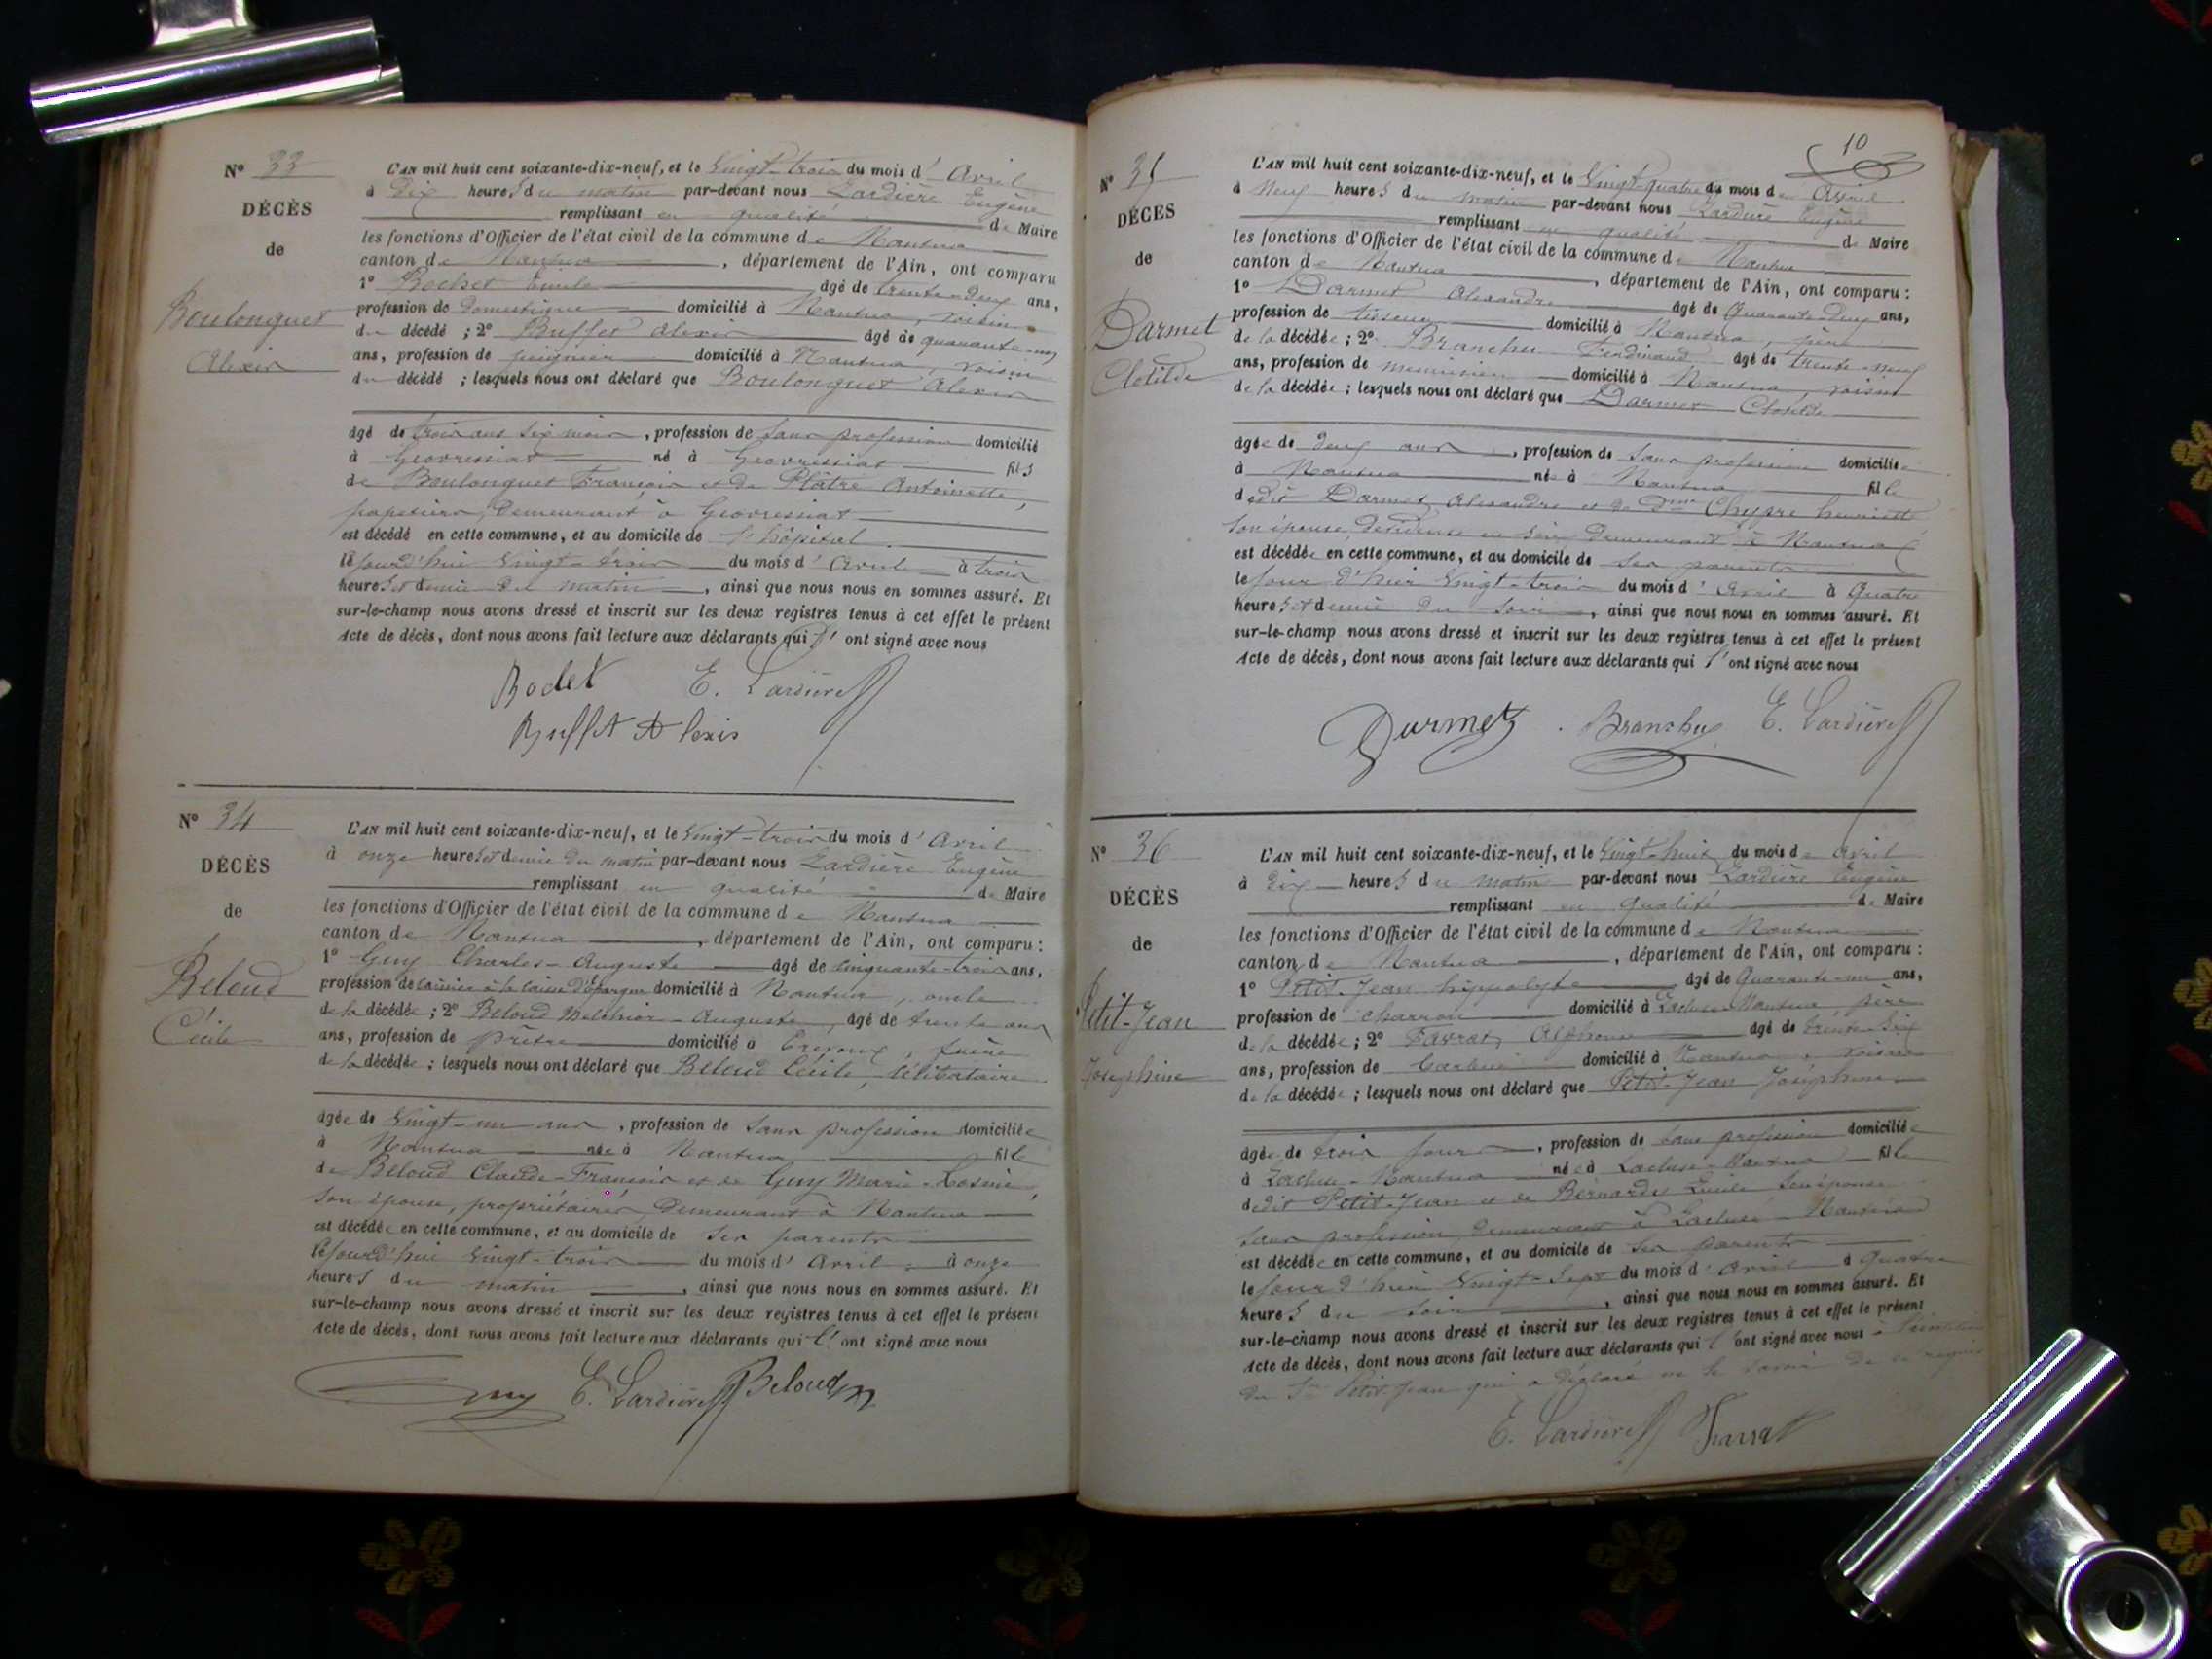 N° 33
DÉCÈS
de
Boulonguet
Alexis
L'AN mil huit cent soixante-dix-neuf, et le Vingt-trois du mois d' Avril
à Dix heures du matin par-devant nous Lardière Eugène
remplissant en qualité de Maire
les fonctions d'Officier de l'état civil de la commune de Nantua
canton de Nantua, département de l'Ain, ont comparu
1° Bochet Emile âgé de trente-deux ans,
profession de Domestique domicilié à Nantua, voisin
du décédé ; 2° Buffet Alexis âgé de quarante-un
ans, profession de peignier domicilié à Nantua, voisin
du décédé ; lesquels nous ont déclaré que Boulonguet Alexis
âgé de trois ans six mois, profession de sans profession domicilié
à Geovressiat né à Geovressiat fils
de Boulonguet François et de Plâtre Antoinette,
papetiers, demeurant à Geovressiat
est décédé en cette commune, et au domicile de l'hôpital
le jourd'hui Vingt-trois du mois d' Avril à trois
heures et demie du matin, ainsi que nous nous en sommes assuré. Et
sur-le-champ nous avons dressé et inscrit sur les deux registres tenus à cet effet le présent
Acte de décès, dont nous avons fait lecture aux déclarants qui l' ont signé avec nous
E. Lardière
Buffet Alexis
N° 34
DÉCÈS
de
Beloud
Cécile
L'AN mil huit cent soixante-dix-neuf, et le Vingt-trois du mois d' Avril
à onze heures et demie du matin par-devant nous Lardière Eugène
remplissant en qualité de Maire
les fonctions d'Officier de l'état civil de la commune de Nantua
canton de Nantua, département de l'Ain, ont comparu :
1° Guy Charles-Auguste âgé de cinquante-trois ans,
profession de caissier à la caisse d'épargne domicilié à Nantua, oncle
de la décédée ; 2° Beloud Melchior-Auguste, âgé de trente ans
ans, profession de prêtre domicilié à frère
de la décédée ; lesquels nous ont déclaré que Beloud Cécile, célibataire
âgée de Vingt-un ans, profession de sans profession domiciliée
à Nantua née à Nantua fille
de Beloud Claude-François et de Guy Marie-Rosine,
son épouse, propriétaires, demeurant à Nantua
est décédée en cette commune, et au domicile de ses parents
le jourd'hui Vingt-trois du mois d' Avril à onze
heures du matin, ainsi que nous nous en sommes assuré. Et
sur-le-champ nous avons dressé et inscrit sur les deux registres tenus à cet effet le présent
Acte de décès, dont nous avons fait lecture aux déclarants qui l' ont signé avec nous
Guy E. Lardière Beloud
10
N° 35
DÉCÈS
de
Darmet
Clotilde
L'AN mil huit cent soixante-dix-neuf, et le Vingt-quatre du mois de Avril
à Neuf heures du matin par-devant nous Lardière Eugène
remplissant en qualité de Maire
les fonctions d'Officier de l'état civil de la commune de Nantua
canton de Nantua, département de l'Ain, ont comparu :
1° Darmet Alexandre âgé de Quarante-deux ans,
profession de tisseur domicilié à Nantua, père
de la décédée ; 2° Branchu Ferdinand âgé de trente-neuf
ans, profession de menuisier domicilié à Nantua, voisin
de la décédée ; lesquels nous ont déclaré que Darmet Clotilde
âgée de deux ans, profession de sans profession domiciliée
à Nantua née à Nantua fille
dudit Darmet Alexandre et de Dme Chypre henriette
son épouse, devideuse en soie demeurant à Nantua
est décédée en cette commune, et au domicile de ses parents
le jour d'hier Vingt-trois du mois d' Avril à Quatre
heures et demie du soir, ainsi que nous nous en sommes assuré. Et
sur-le-champ nous avons dressé et inscrit sur les deux registres tenus à cet effet le présent
Acte de décès, dont nous avons fait lecture aux déclarants qui l' ont signé avec nous
Darmet Branchu E. Lardière
N° 36
DÉCÈS
de
Petit-Jean
Joséphine
L'AN mil huit cent soixante-dix-neuf, et le Vingt-huit du mois de Avril
à Dix heures du matin par-devant nous Lardière Eugène
remplissant en qualité de Maire
les fonctions d'Officier de l'état civil de la commune de Nantua
canton de Nantua, département de l'Ain, ont comparu :
1° Petit-Jean hippolyte âgé de Quarante-un ans,
profession de charron domicilié à Lacluse-Nantua, père
de la décédée ; 2° Favrat Alphonse âgé de trente-six
ans, profession de domicilié à Nantua, voisin
de la décédée ; lesquels nous ont déclaré que Petit-Jean Joséphine
âgée de trois jours, profession de sans profession domiciliée
à Lacluse-Nantua née à Lacluse-Nantua fille
dudit Petit-Jean et de Bernardy son épouse
sans profession demeurant à Lacluse-Nantua
est décédée en cette commune, et au domicile de ses parents
le jour d'hier Vingt-sept du mois d' Avril à Quatre
heures du soir, ainsi que nous nous en sommes assuré. Et
sur-le-champ nous avons dressé et inscrit sur les deux registres tenus à cet effet le présent
Acte de décès, dont nous avons fait lecture aux déclarants qui l' ont signé avec nous à
du Sr Petit-Jean qui a déclaré ne le savoir de ce requis
E. Lardière Favrat